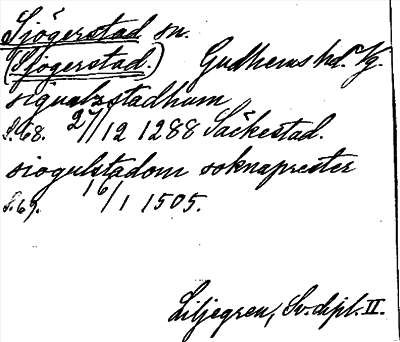 Sjögerstad sn.
(Sjögerstad.) Gudhems hd. Vg.
sigualzstadhum
S. 68. 27/12 1288 Säckestad.
siogulstadom soknaprester
S. 69. 16/1 1505.
Liljegren, Sv. dipl. II.